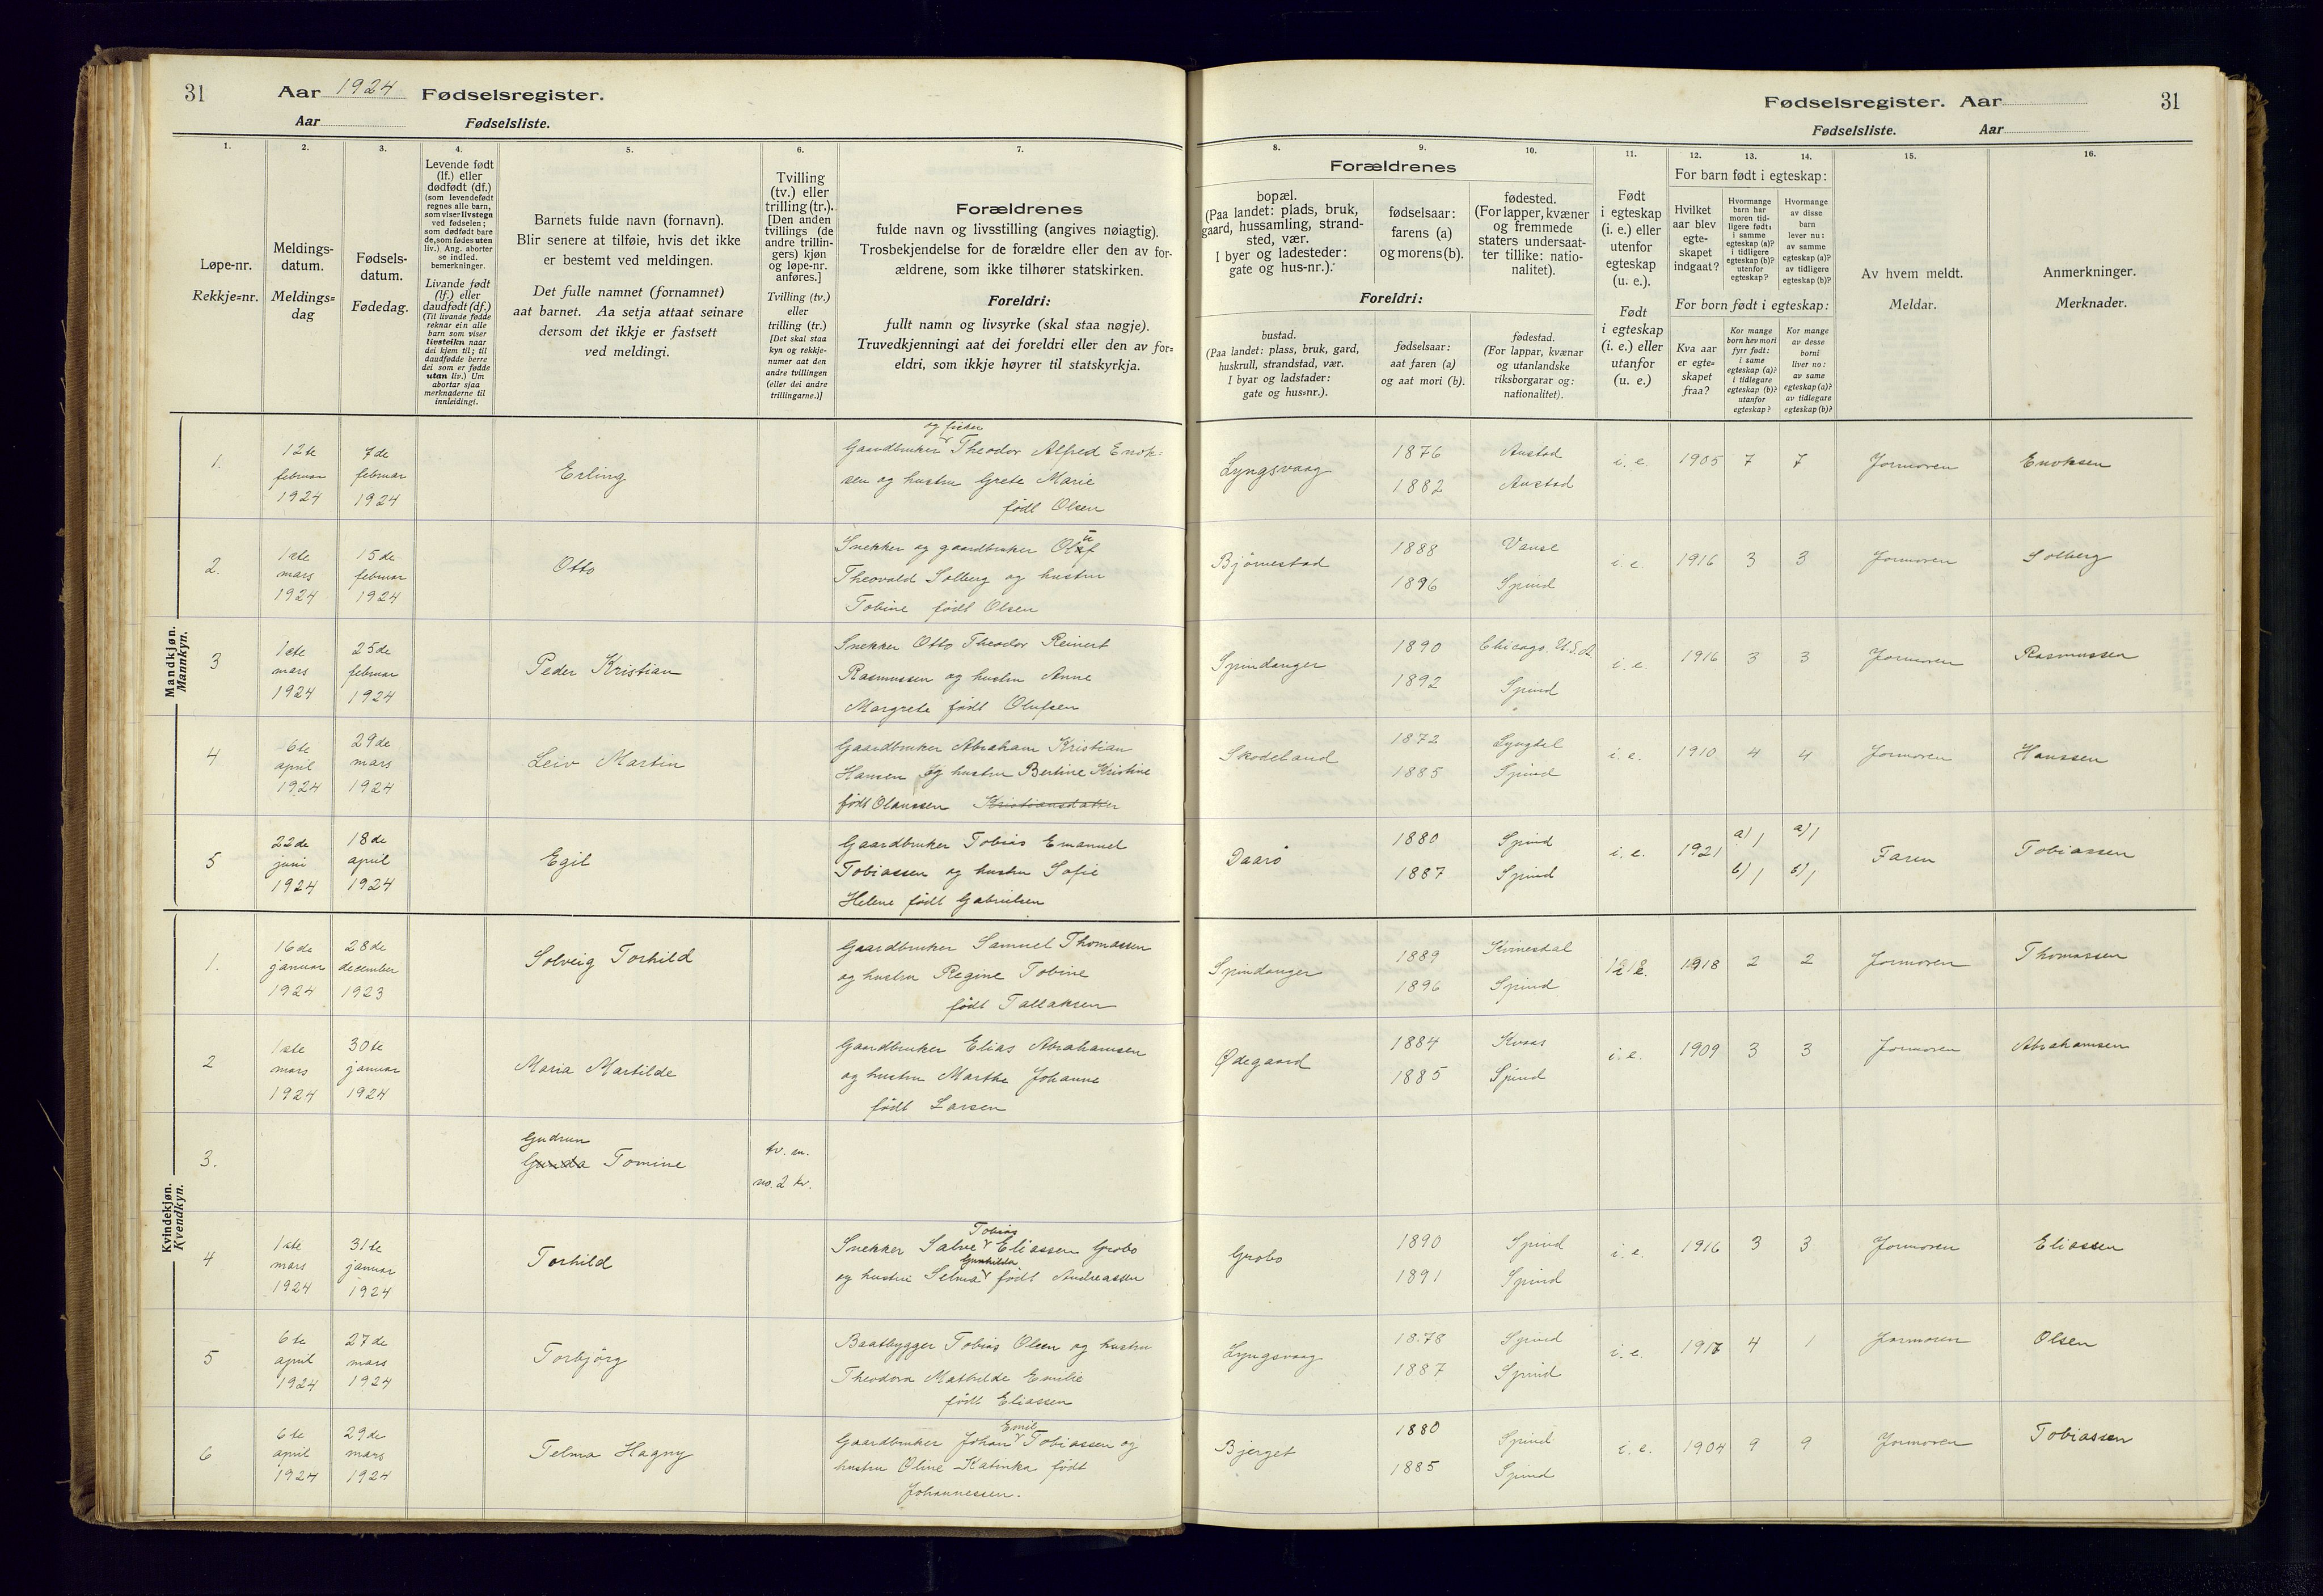 31
Aar 1924 Fødselsregister.
Aar Fødselsliste.
Fødselsregister. Aar
Fødselsliste. Aar
31
1.
Løpe-nr.
Rekkje=nr.
2.
Meldings-
datum.
Meldings=
dag
3.
Fødsels-
datum.
Fødedag.
4.
Levende født
(lf.) eller
dødfødt (df.)
(som levendefødt
regnes alle barn,
som viser livstegn
ved fødselen;
som dødfødt bare
de, som fødes uten
liv.) Ang. aborter
se indled.
bemerkninger.
Livande født
(lf.) eller
daudfødt (df.)
(Til livande fødde
reknar ein alle
barn som viser
livsteikn naar
dei kjem til; til
daudfødde berre
dei som er fødde
utan liv.) Um
abortar sjaa
merknaderne til
innleidingi.
5.
Barnets fulde navn (fornavn).
Blir senere at tilføie, hvis det ikke
er bestemt ved meldingen.
Det fulle namnet (fornamnet)
aat barnet. Aa setja attaat seinare
dersom det ikkje er fastsett
ved meldingi.
6.
Tvilling
(tv.) eller
trilling (tr.).
[Den anden
tvillings (de
andre trillin-
gers) kjøn
og løpe-nr.
anføres.]
Tvilling (tv.)
eller
trilling (tr.)
[Det skal staa
kyn og rekkje-
numer aat den
andre tvillingen
(eller dei andre
trillingarne.)]
7.
Forældrenes
fulde navn og livsstilling (angives nøiagtig).
Trosbekjendelse for de forældre eller den av for-
ældrene, som ikke tilhører statskirken.
Foreldri:
fullt namn og livsyrke (skal staa nøgje).
Truvedkjenningi aat dei foreldri eller den av for=
eldri, som ikkje høyrer til statskyrkja.
Forældrenes
8.
bopæl.
(Paa landet: plads, bruk,
gaard, hussamling, strand-
sted, vær.
I byer og ladesteder:
gate og hus-nr.).
9.
fødselsaar:
farens (a)
og morens (b).
10.
fødested.
(For lapper, kvæner
og fremmede
staters undersaat-
ter tillike: natio-
nalitet).
Foreldri:
bustad.
(Paa landet: plass, bruk, gard,
huskrull, strandstad, vær.
I byar og ladstader:
gate og hus=nr.).
fødselsaar:
aat faren (a)
og aat mori (b).
fødestad.
(For lappar, kvænar
og utanlandske
riksborgarar og:
nationalitet).
11.
Født
i egteskap
(i. e.) eller
utenfor
egteskap
(u. e.).
Født
i egteskap
(i. e.) eller
utanfor
(u. e.)
12. 13. 14.
For barn født i egteskap:
Hvilket
aar blev
egte-
skapet
indgaat?
Hvormange
barn har
moren tid-
ligere født:
i samme
egteskap (a)?
i tidligere
egteskap (b)?
utenfor
egteskap?
Hvormange
av disse
barn
lever nu:
av samme
egteskap (a)?
av tidligere
egteskap (b)?
For born født i egteskap:
Kva aar
er egte=
skapet
fraa?
Kor mange
born hev mori
fyrr født:
i same
egteskap (a)?
i tidlegare
egteskap (b)?
utanfor
egteskap?
Kor mange
av desse
borni
liver no:
av same
egteskap (a)?
av tidlegare
egteskap (b)?
15.
Av hvem meldt.
Meldar.
16.
Anmerkninger.
Merknader.
Mandkjøn.
Mannkyn.
1. 12te februar 1924 7de februar 1924 Erling
og fisker
Gaardbruker Theodor Alfred Enok=
sen og hustru Grete Marie
født Olsen
Lyngsvaag 1876 1882 Austad Austad i. e. 1905 7 7 Jormoren Enoksen
2. 1ste mars 1924 15de februar 1924 Otto
Snekker og gaardbruker Oluf
Theovald Solberg og hustru
Tobine født Olsen
Bjørnestad 1888 1896 Vanse Spind i. e. 1916 3 3 Jormoren Solberg
3 1ste mars 1924 25de februar 1924 Peder Kristian
Snekker Otto Theodor Reinert
Rasmussen og hustru Anne
Margrete født Olufsen
Spindanger 1890 1892 Chicago. U.S.A. Spind i. e. 1916 3 3 Jormoren Rasmussen
4 6te april 1924 29de mars 1924 Leiv Martin
Gaardbruker Abraham Kristian
Hansen og hustru Bertine Kristine
født Olaussen Kristiansdatter
Skodeland 1872 1885 Lyngdal Spind i. e. 1910 4 4 Jormoren Hanssen
5 22de juni 1924 18de april 1924 Egil
Gaardbruker Tobias Emanuel
Tobiassen og hustru Sofie
Helene født Gabrielsen
Daarø 1880 1887 Spind Spind i. e. 1921 a) 1 b) 1 a) 1 b) 1 Faren Tobiassen
Kvindekjøn.
Kvendkyn.
1. 16de januar 1924 28de december 1923 Solveig Torhild
Gaardbruker Samuel Thomassen
og hustru Regine Tobine
født Tallaksen
Spindanger 1889 1896 Kvinesdal Spind i. e. 1918 2 2 Jormoren Thomassen
2 1ste mars 1924 30te januar 1924 Maria Martilde
Gaardbruker Elias Abrahamsen
og hustru Marthe Johanne
født Larsen
Ødegaard 1884 1885 Kvaas Spind i. e. 1909 3 3 Jormoren Abrahamsen
3. Gudrun
Gunda Tomine
tv. m.
no. 2 kv.
4 1ste mars 1924 31te januar 1924 Torhild
Tobias
Snekker Salve Eliassen Grobo
Gunhilda
og hustru Selma født Andreassen
Grobo 1890 1891 Spind Spind i. e. 1916 3 3 Jormoren Eliassen
5 6te april 1924 27de mars 1924 Torbjörg
Baatbygger Tobias Olsen og hustru
Theodora Mathilde Emilie
født Eliassen
Lyngsvaag 1878 1887 Spind Spind i. e. 4 1 Jormoren Olsen
6 6te april 1924 29de mars 1924 Telma Hagny
Emil
Gaardbruker Johan Tobiassen og
hustru Oline Katinka født
Johannessen.
Bjerget 1880 1885 Spind Spind i. e. 1904 9 9 Jormoren Tobiassen